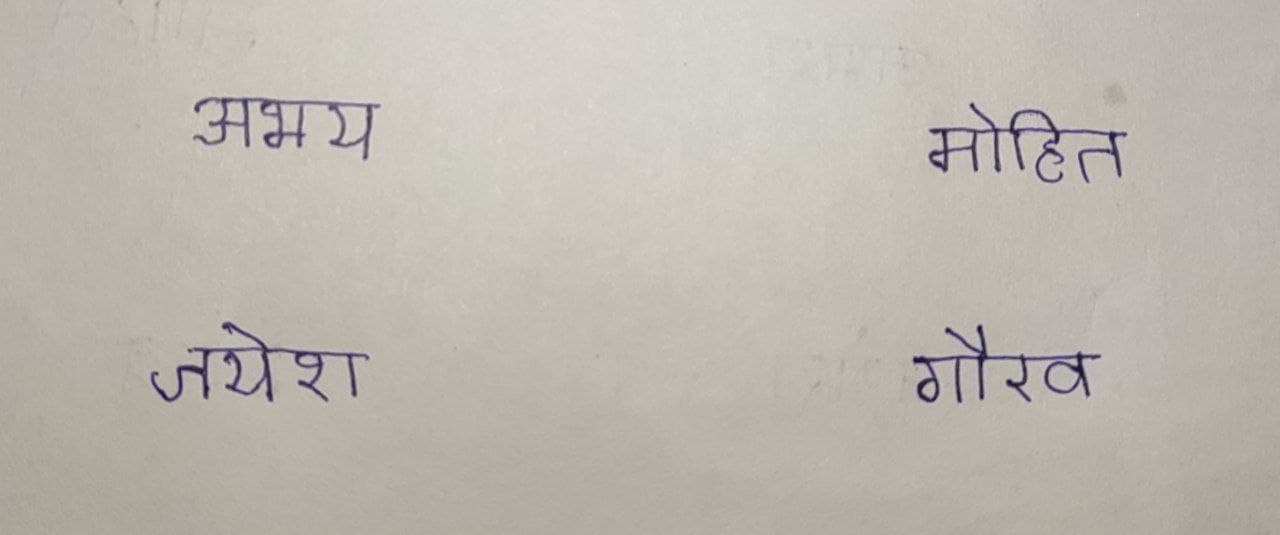 अभय मोहित
जयेश गौरव